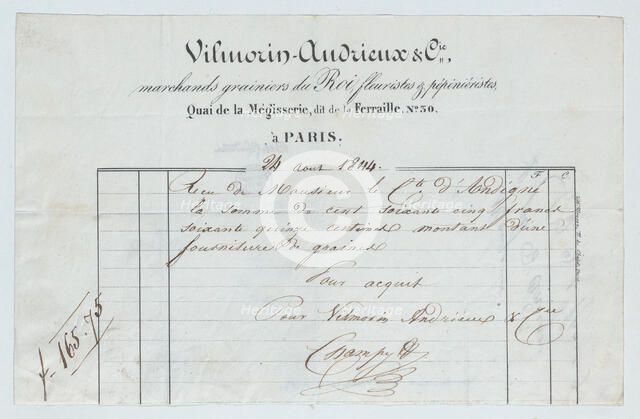 Vilmorin-Andrieux & Cie,
marchands grainiers du Roi, fleuristes & pépiniéristes,
Quai de la Mégisserie, dit de la Ferraille, No 30,
à PARIS.
24 aout 1844.
F. C.
Reçu de Monsieur le Cte d'Andigné
la somme de cent soixante cinq francs
soixante quinze centimes montant d'une
fourniture de graines
Pour acquit
Pour Vilmorin Andrieux & Cie
f. 165.75
Heritage
Heritage
Heritage
Heritage